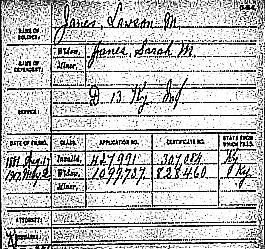 NAME OF SOLDIER: Janes, Lawson M.
NAME OF DEPENDENT: Widow, Janes, Sarah M.
Minor,
SERVICE: D 13 Ky Inf
DATE OF FILING. CLASS. APPLICATION NO. CERTIFICATE NO. STATE FROM WHICH FILED.
1881 Aug. 17 Invalid, 427,991 307,084 Ky
Widow, 1099,737 828,460 Ky
Minor,
ATTORNEY: